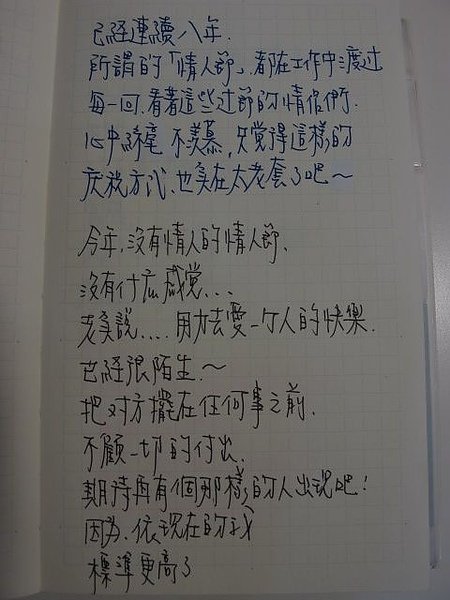 已經連續八年.
所謂的「情人節」都在工作中渡过
每一回.看著這些过節的情侶們.
心中絲毫不羡慕,只覚得這樣的
庆祝方式.也实在太老套了吧～
今年,沒有情人的情人節.
沒有什庅感覚...
老实說....用力去愛一个人的快樂.
已經很陌生.～
把对方擺在任何事之前.
不顧一切的付出.
期待再有個那樣的人出現吧!
因為.依現在的我
標準更高了